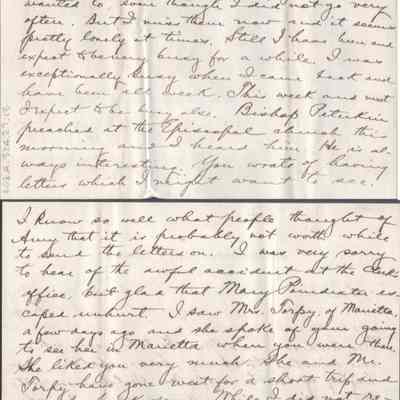 wanted to, even though I did not go very
often. But I miss them now and it seems
pretty lonely at times. Still I have been and
expect to be very busy for a while. I was
exceptionally busy when I came back and
have been all week. This week and next
I expect to be busy also. Bishop Peterkin
preached at the Episcopal church this
morning and I heard him. He is al-
ways interesting. You wrote of having
letters which I might want to see.
I know so well what people thought of
Amy that it is probably not worth while
to send the letters on. I was very sorry
to hear of the awful accident at the
office, but glad that Mary es-
caped unhurt. I saw Mrs. Torpy, of Marietta,
a few days ago and she spoke of your going
to see her in Marietta when you were there.
She liked you very much. She and Mr.
Torpy have gone west for a short trip and
I did not